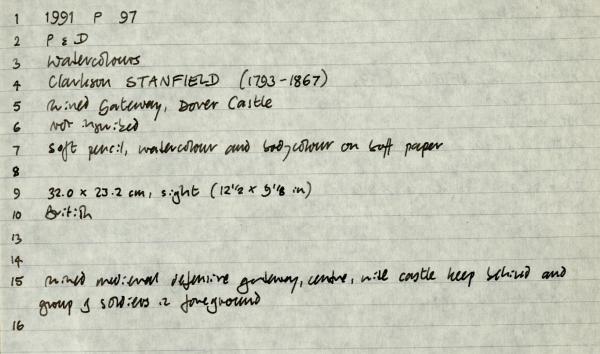 1 1991 P 97
2 P & D
3 Watercolours
4 Clarkson STANFIELD (1793-1867)
5 Ruined Gateway, Dover Castle
6 not inscribed
7 soft pencil, watercolour and bodycolour on buff paper
8
9 32.0 x 23.2 cm, sight (12 1/2 x 9 1/8 in)
10 British
13
14
15 ruined medieval defensive gateway, centre, with castle keep behind and
group of soldiers in foreground
16